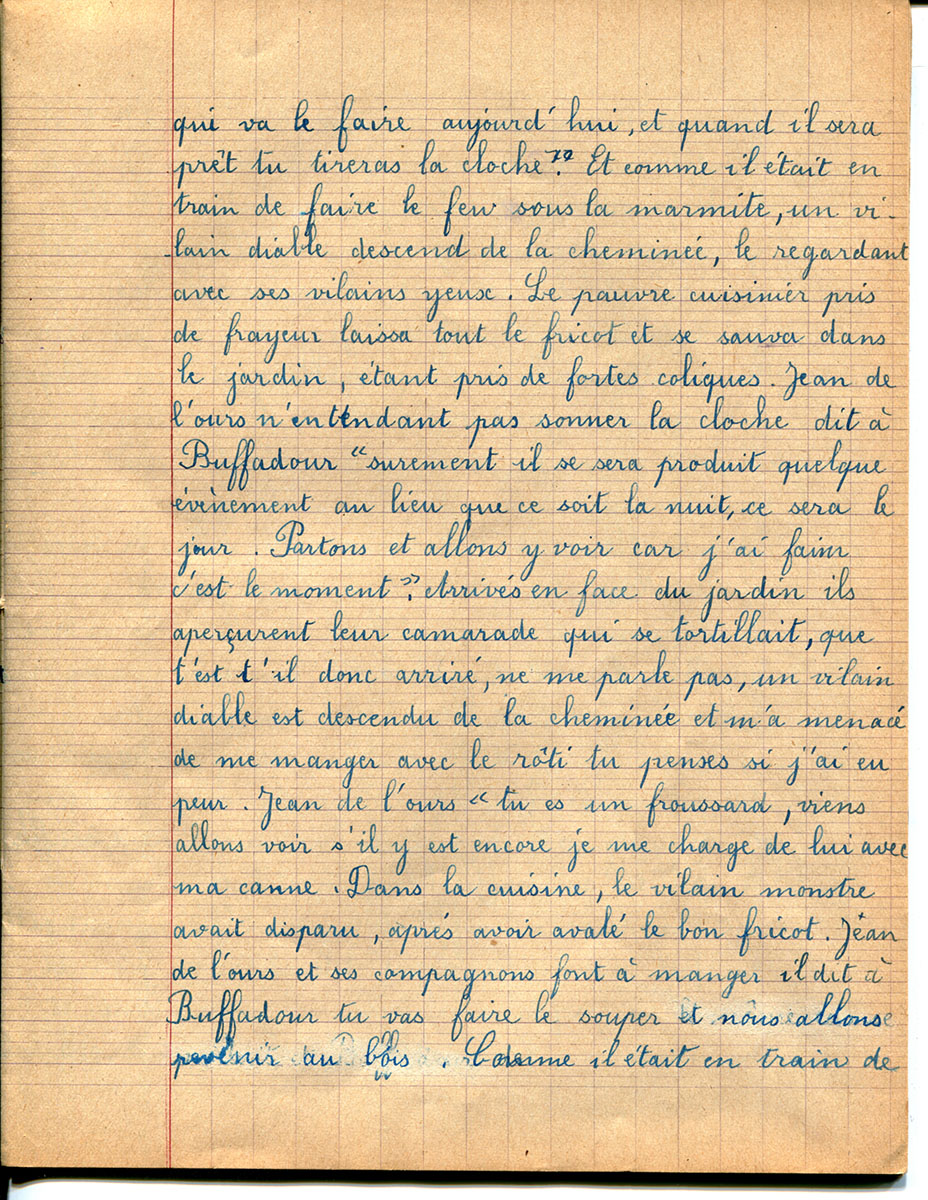 qui va le faire aujourd'hui, et quand il sera
prêt tu tireras la cloche". Et comme il était en
train de faire le feu sous la marmite, un vi-
lain diable descend de la cheminée, le regardant
avec ses vilains yeux. Le pauvre cuisinier pris
de frayeur laissa tout le fricot et se sauva dans
le jardin, étant pris de fortes coliques. Jean de
l'ours n'entendant pas sonner la cloche dit à
Buffadour "surement il se sera produit quelque
évènement au lieu que ce soit la nuit, ce sera le
jour. Partons et allons y voir car j'ai faim
c'est le moment". Arrivés en face du jardin ils
aperçurent leur camarade qui se tortillait, que
t'est t'il donc arrivé, ne me parle pas, un vilain
diable est descendu de la cheminée et m'a menacé
de me manger avec le rôti tu penses si j'ai eu
peur. Jean de l'ours "tu es un froussard, viens
allons voir s'il y est encore je me charge de lui avec
ma canne. Dans la cuisine, le vilain monstre
avait disparu, aprés avoir avalé le bon fricot. Jean
de l'ours et ses compagnons font à manger il dit à
Buffadour tu vas faire le souper et nous allons
revenir au bois. Comme il était en train de